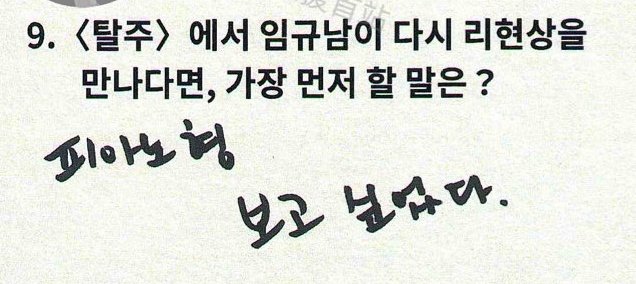 9. 〈탈주〉에서 임규남이 다시 리현상을
만나다면, 가장 먼저 할 말은?
피아노형
보고 싶었다.